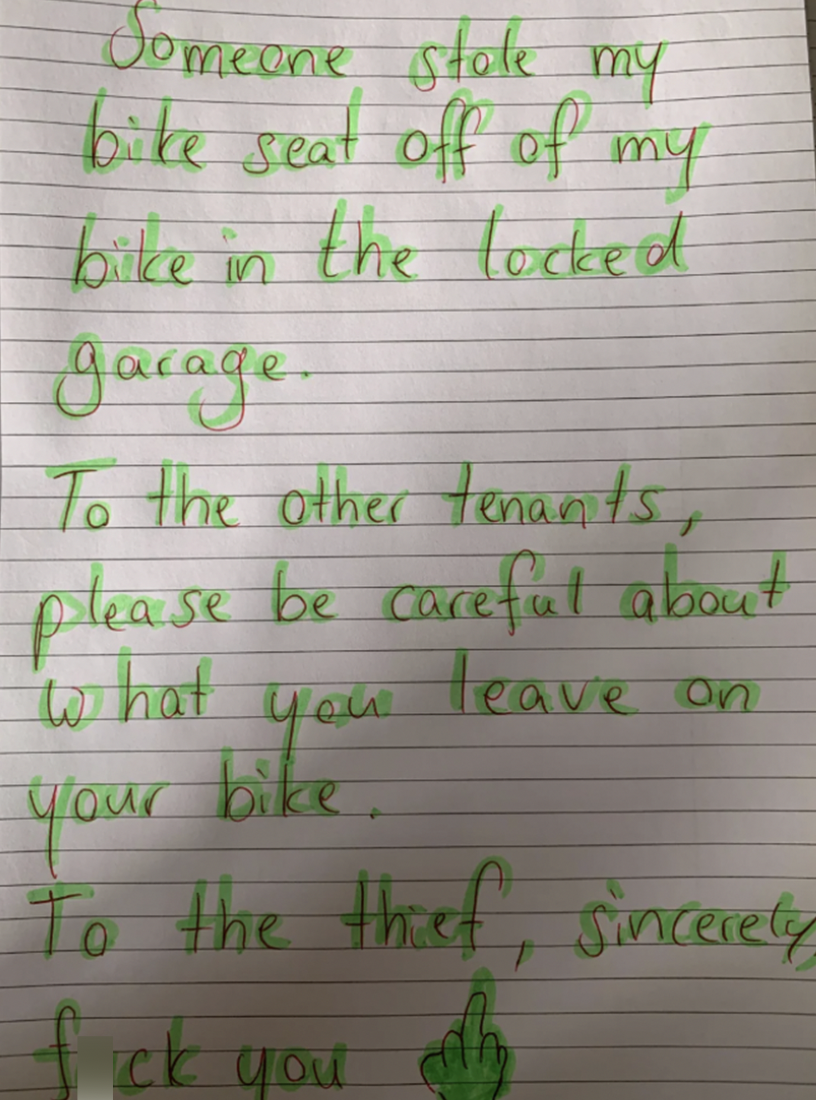 Someone stole my
bike seat off of my
bike in the locked
garage.
To the other tenants,
please be careful about
what you leave on
your bike.
To the thief, sincerely
f ck you